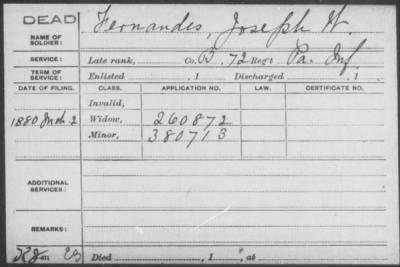 DEAD
NAME OF SOLDIER: Fernandes, Joseph W.
SERVICE: Late rank, Co. B, 72 Regt Pa. Inf.
TERM OF SERVICE: Enlisted , 1 Discharged , 1
DATE OF FILING. CLASS. APPLICATION NO. LAW. CERTIFICATE NO.
Invalid,
1880 2 Widow, 260872
Minor, 380713
ADDITIONAL SERVICES:
REMARKS:
Died , 1 , at